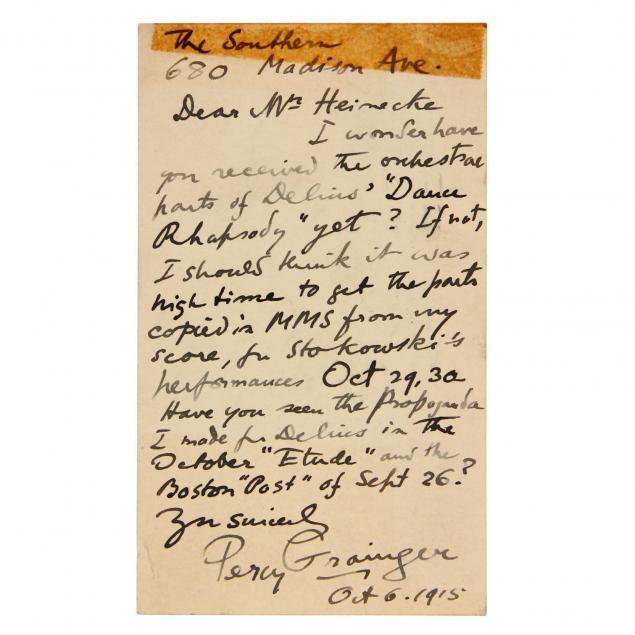 The Southern
680 Madison Ave.
Dear Mr Heinecke
I wonder have
you received the orchestral
parts of Delius' "Dance
Rhapsody" yet? If not,
I should think it was
high time to get the parts
copied in MMS from my
score, for Stokowski's
performances Oct 29, 30
Have you seen the Propaganda
I made for Delius in the
October "Etude" and the
Boston "Post" of Sept 26?
Yrs sincerely
Percy Grainger
Oct 6. 1915